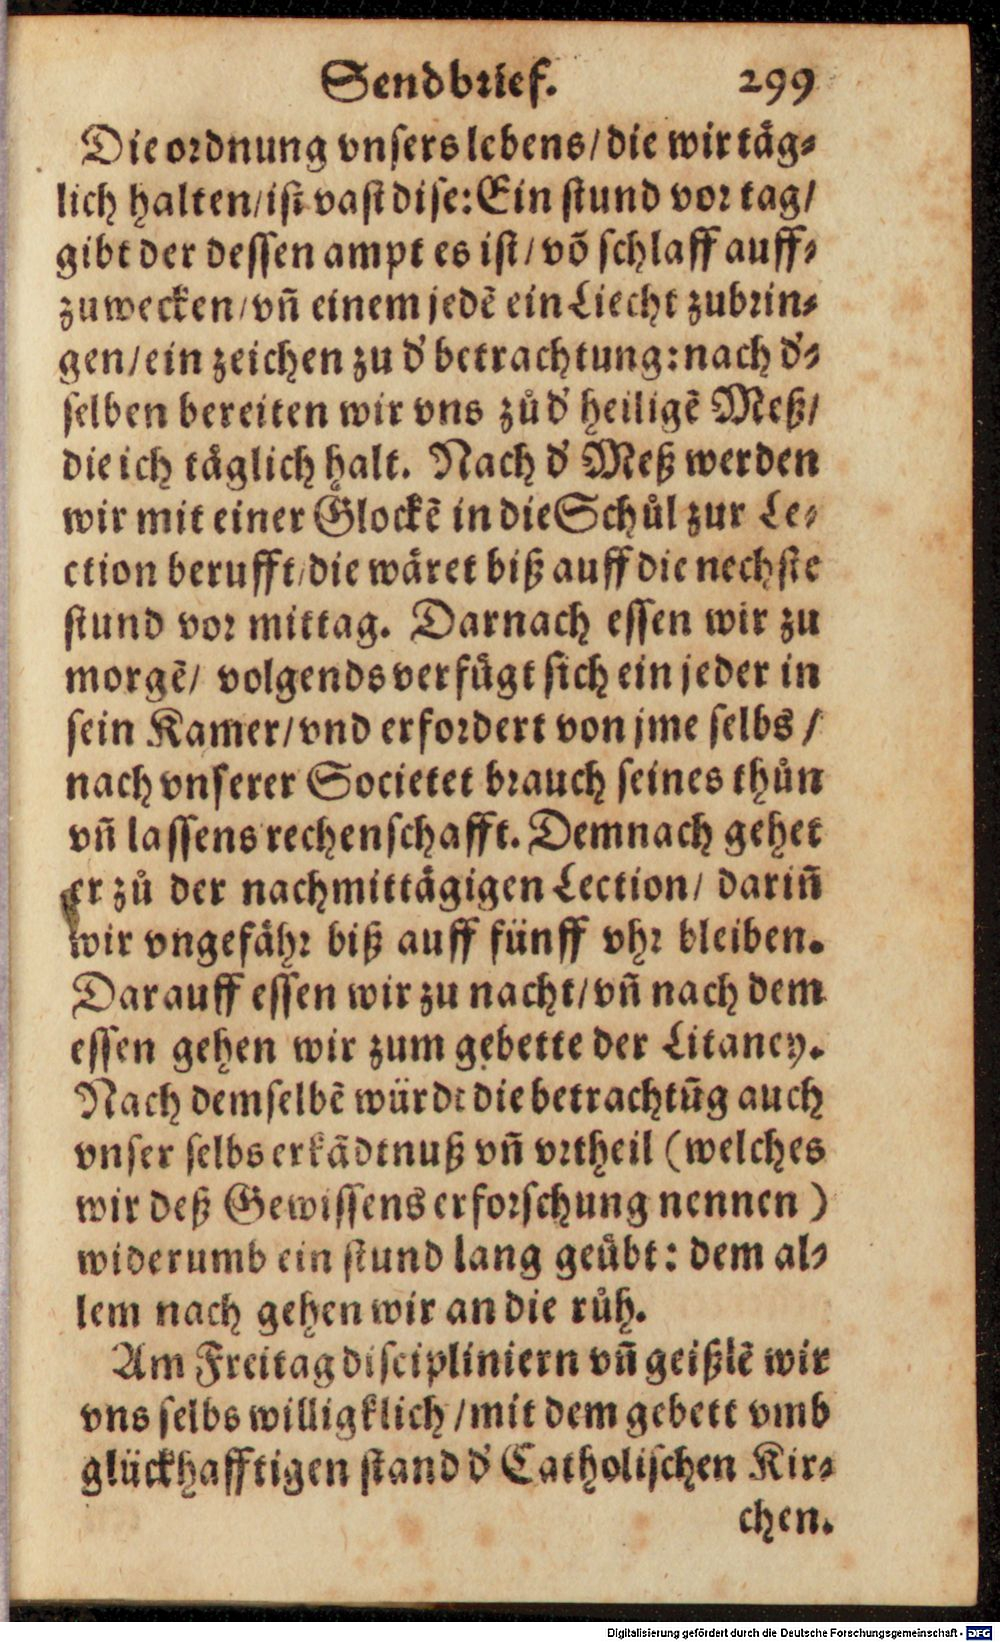 Sendbrief. 299
Die ordnung vnsers lebens/ die wir täg⸗
lich halten/ ist vast dise: Ein stund vor tag/
gibt der dessen ampt es ist/ võ schlaff auff⸗
zuwecken/ vñ einem jedẽ ein Liecht zubrin⸗
gen/ ein zeichen zu d' betrachtung: nach d'⸗
selben bereiten wir vns zů d' heiligẽ Meß/
die ich täglich halt. Nach d' Meß werden
wir mit einer Glockẽ in die Schůl zur Le⸗
ction berufft/ die wäret biß auff die nechste
stund vor mittag. Darnach essen wir zu
morgẽ/ volgends verfügt sich ein jeder in
sein Kamer/ vnd erfordert von jme selbs /
nach vnserer Societet brauch seines thůn
vñ lassens rechenschafft. Demnach gehet
er zů der nachmittägigen Lection/ dariñ
wir vngefähr biß auff fünff vhr bleiben.
Darauff essen wir zu nacht/ vñ nach dem
essen gehen wir zum gebette der Litaney.
Nach demselbẽ würdt die betrachtũg auch
vnser selbs erkãdtnuß vñ vrtheil (welches
wir deß Gewissens erforschung nennen)
widerumb ein stund lang geübt: dem al⸗
lem nach gehen wir an die růh.
Am Freitag discipliniern vñ geißlẽ wir
vns selbs willigklich / mit dem gebett vmb
glückhafftigen stand d' Catholischen Kir⸗
chen.
Digitalisierung gefördert durch die Deutsche Forschungsgemeinschaft - DFG